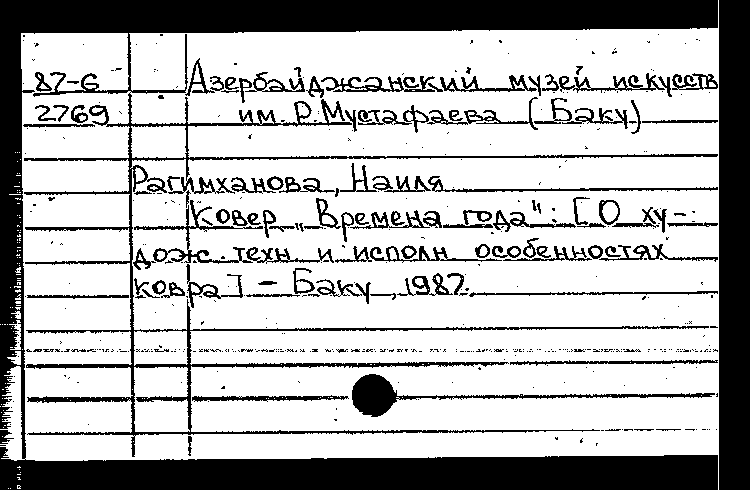 87-6
2769
Азербайджанский музей искусств
им. Р. Мустафаева (Баку)
Рагимханова, Наиля
Ковер „Времена года": [О ху-
дож. техн. и исполн особенностях
ковра] - Баку, 1987.